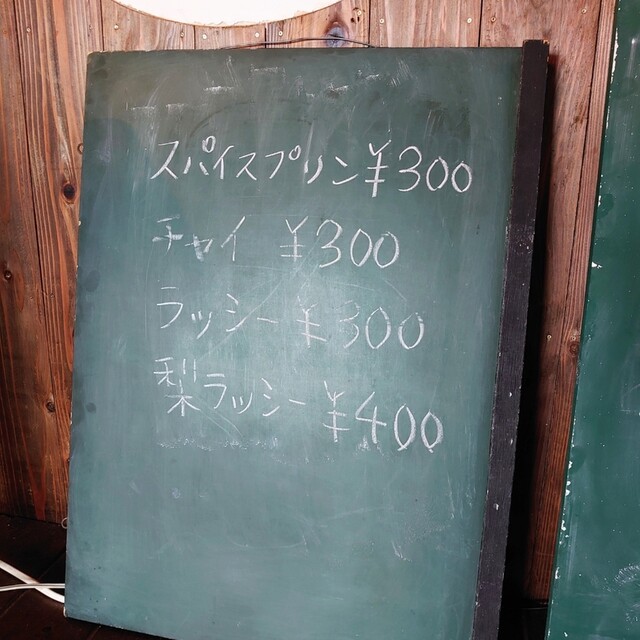 スパイスプリン ¥300
チャイ ¥300
ラッシー ¥300
梨ラッシー ¥400